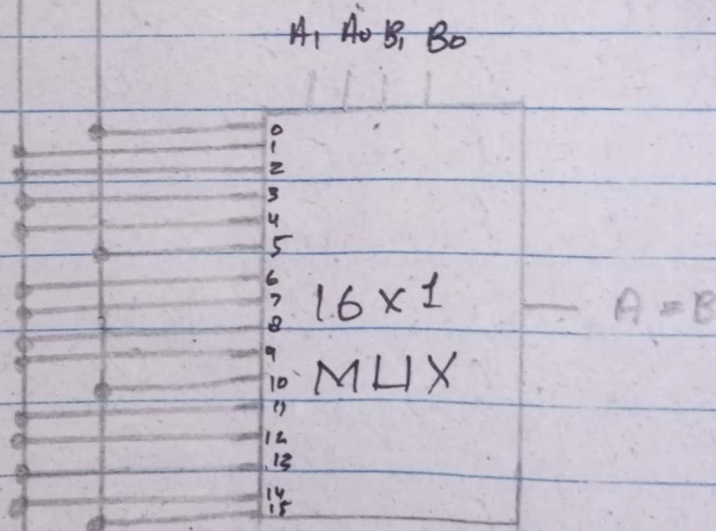 A1 A0 B1 B0
0
1
2
3
4
5
6
7
8
9
10
11
12
13
14
15
16x1
MUX
A = B